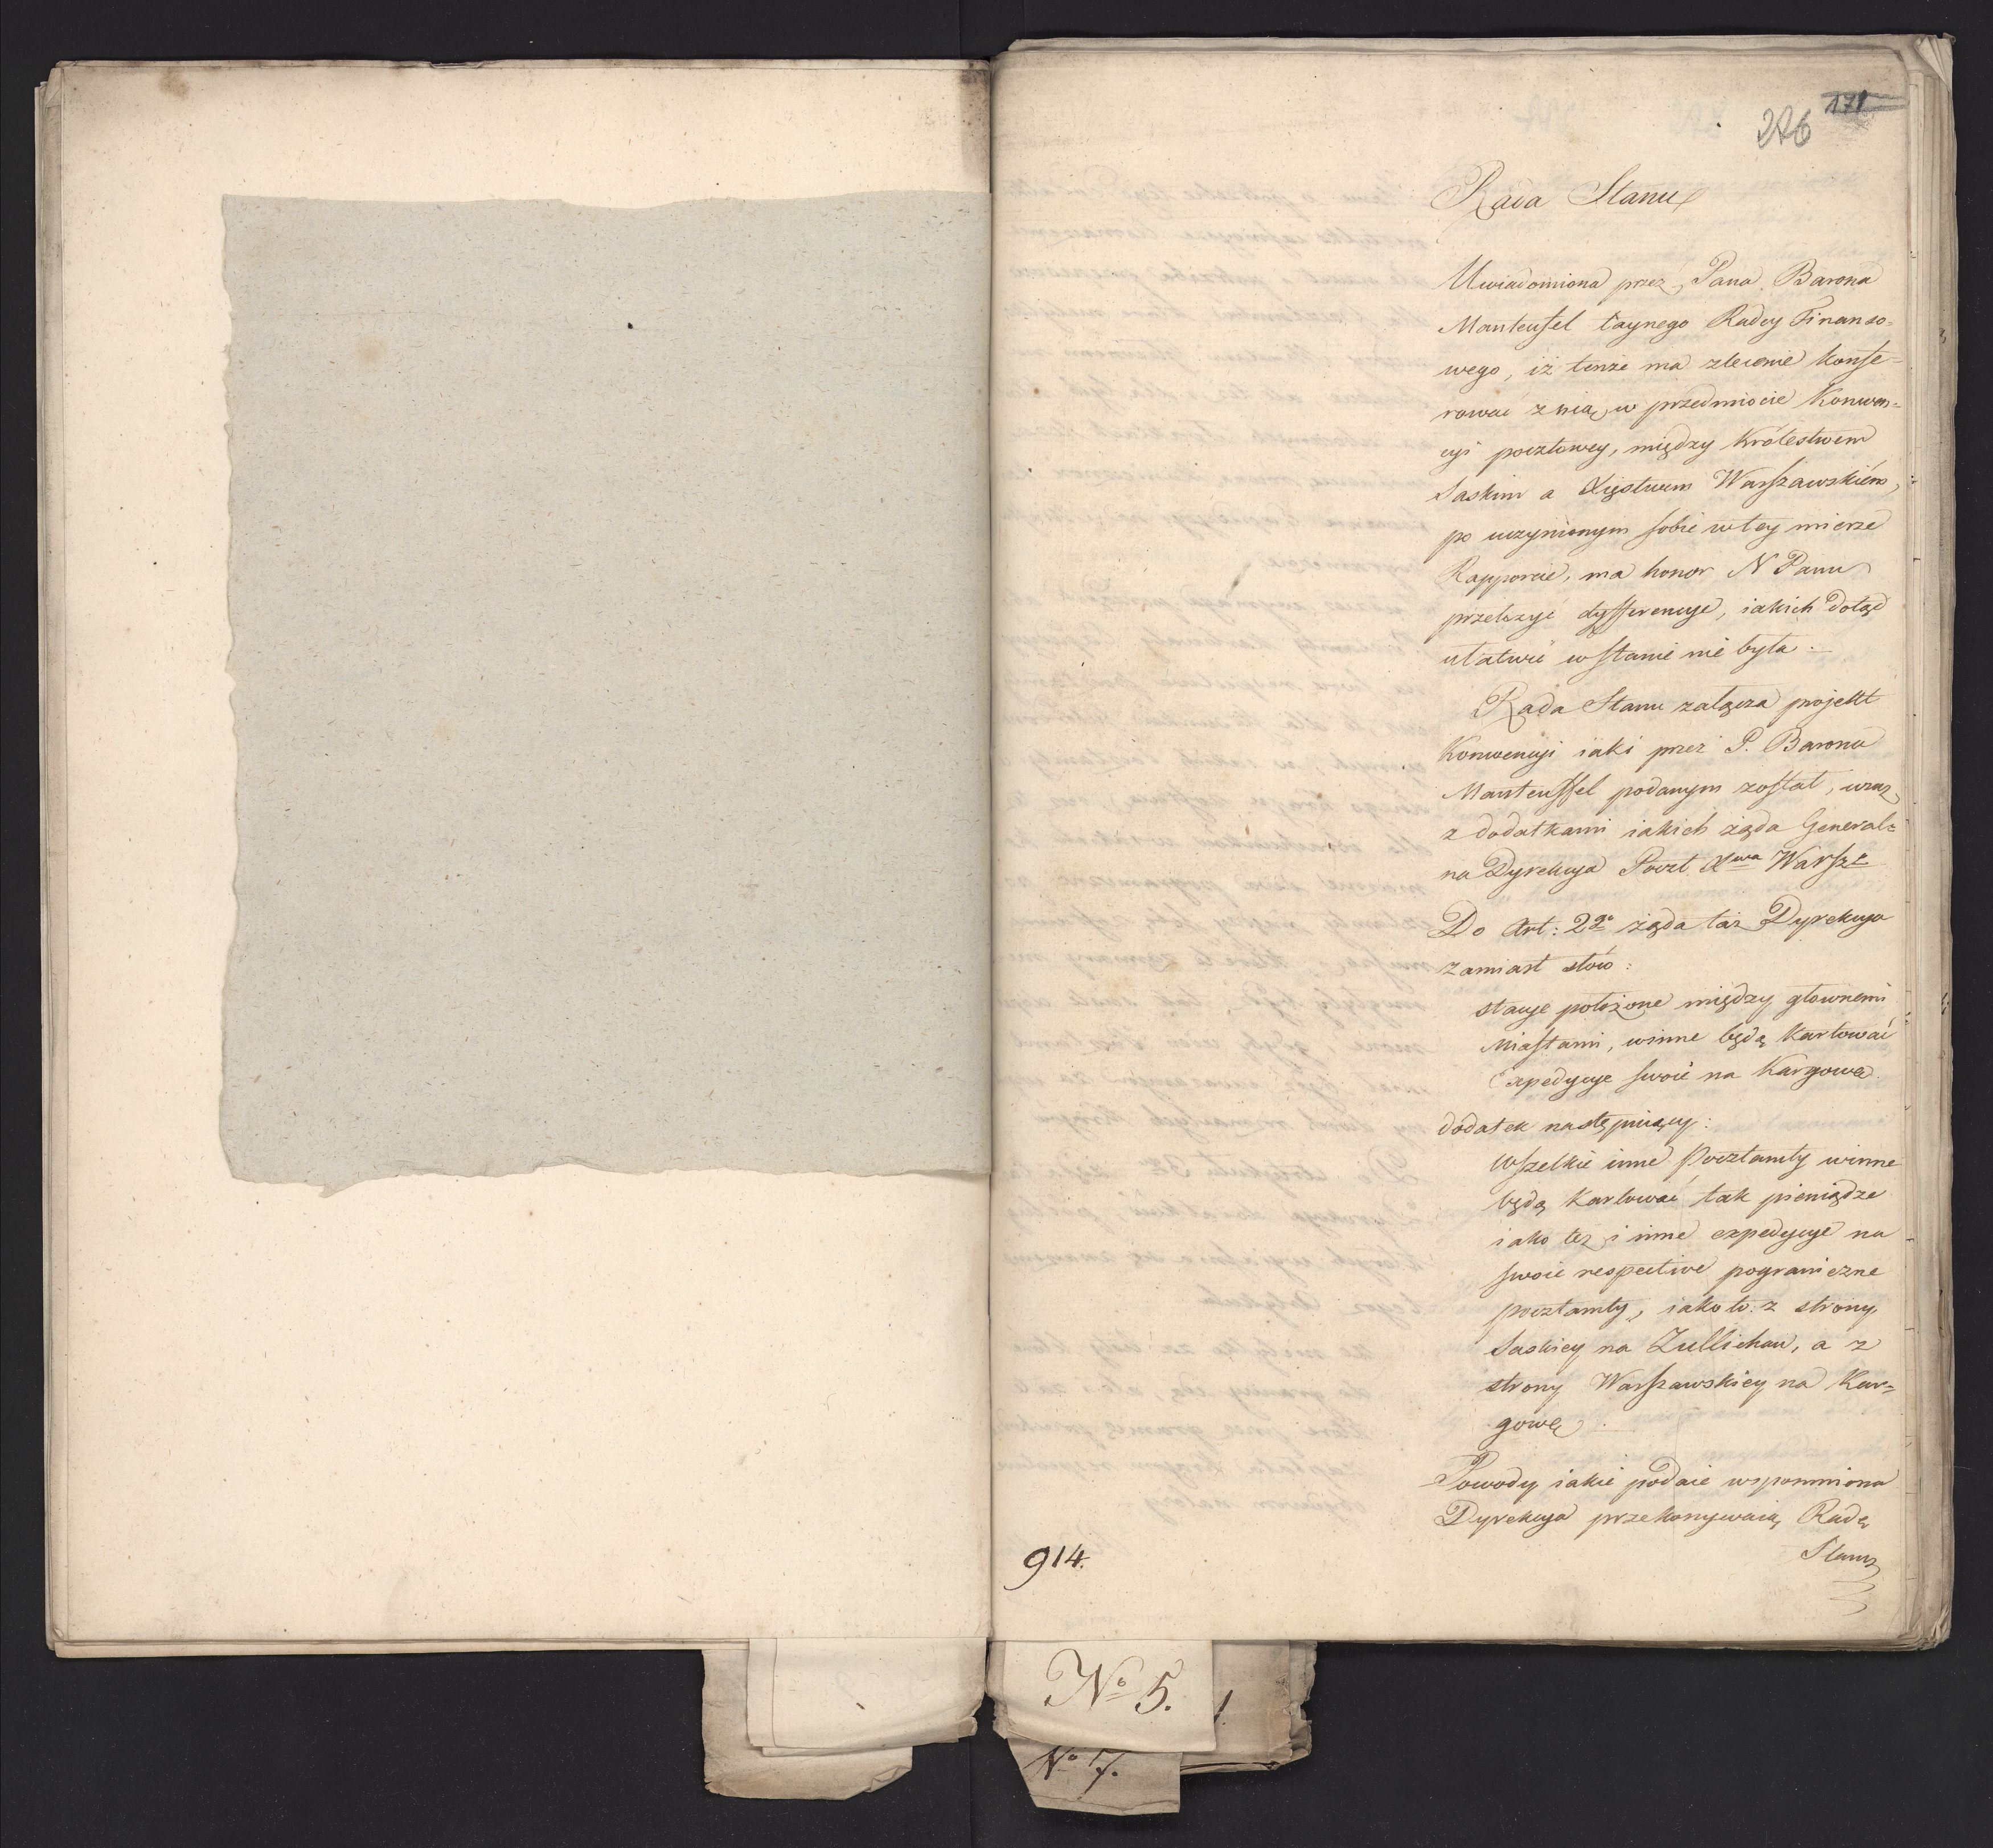 171
276
Rada Stanu
Uwiadomiona przez Pana Barona
Manteufel taynego Radcy Finanso=
wego, iż tenże ma zlecenie konfe=
rować z nią w przedmiocie Konwen=
cyi pocztowey, między Królestwem
Saskim a Xięstwem Warszawskiém,
po uczynionym sobie w tey mierze
Rapporcie, ma honor N Panu
przełożyć dyfferencye, iakich dotąd
ułatwić w stanie nie była.
Rada Stanu załącza projekt
Konwencyi iaki przez P. Barona
Manteuffel podanym został, wraz
z dodatkami iakich żąda General=
na Dyrekcya Poczt Xwa Warsz:
Do Art: 2go żąda taż Dyrekcya
zamiast słów:
stacye położone między głownemi
Miastami, winne będą kartować
Expedycye swoie na Kargowę.
dodatek następuiący:
Wszelkie inne Pocztamty winne
będą kartować tak pieniądze
iako też i inne expedycye na
swoie respective pograniczne
pocztamty, iako to: z strony
Saskiey na Zullichau, a z
strony Warszawskiey na Kar=
gowę.
Powody iakie podaie wspomniona
Dyrekcya przekonywaią Radę
Stanu
914.
No 5.
1.
No 7.